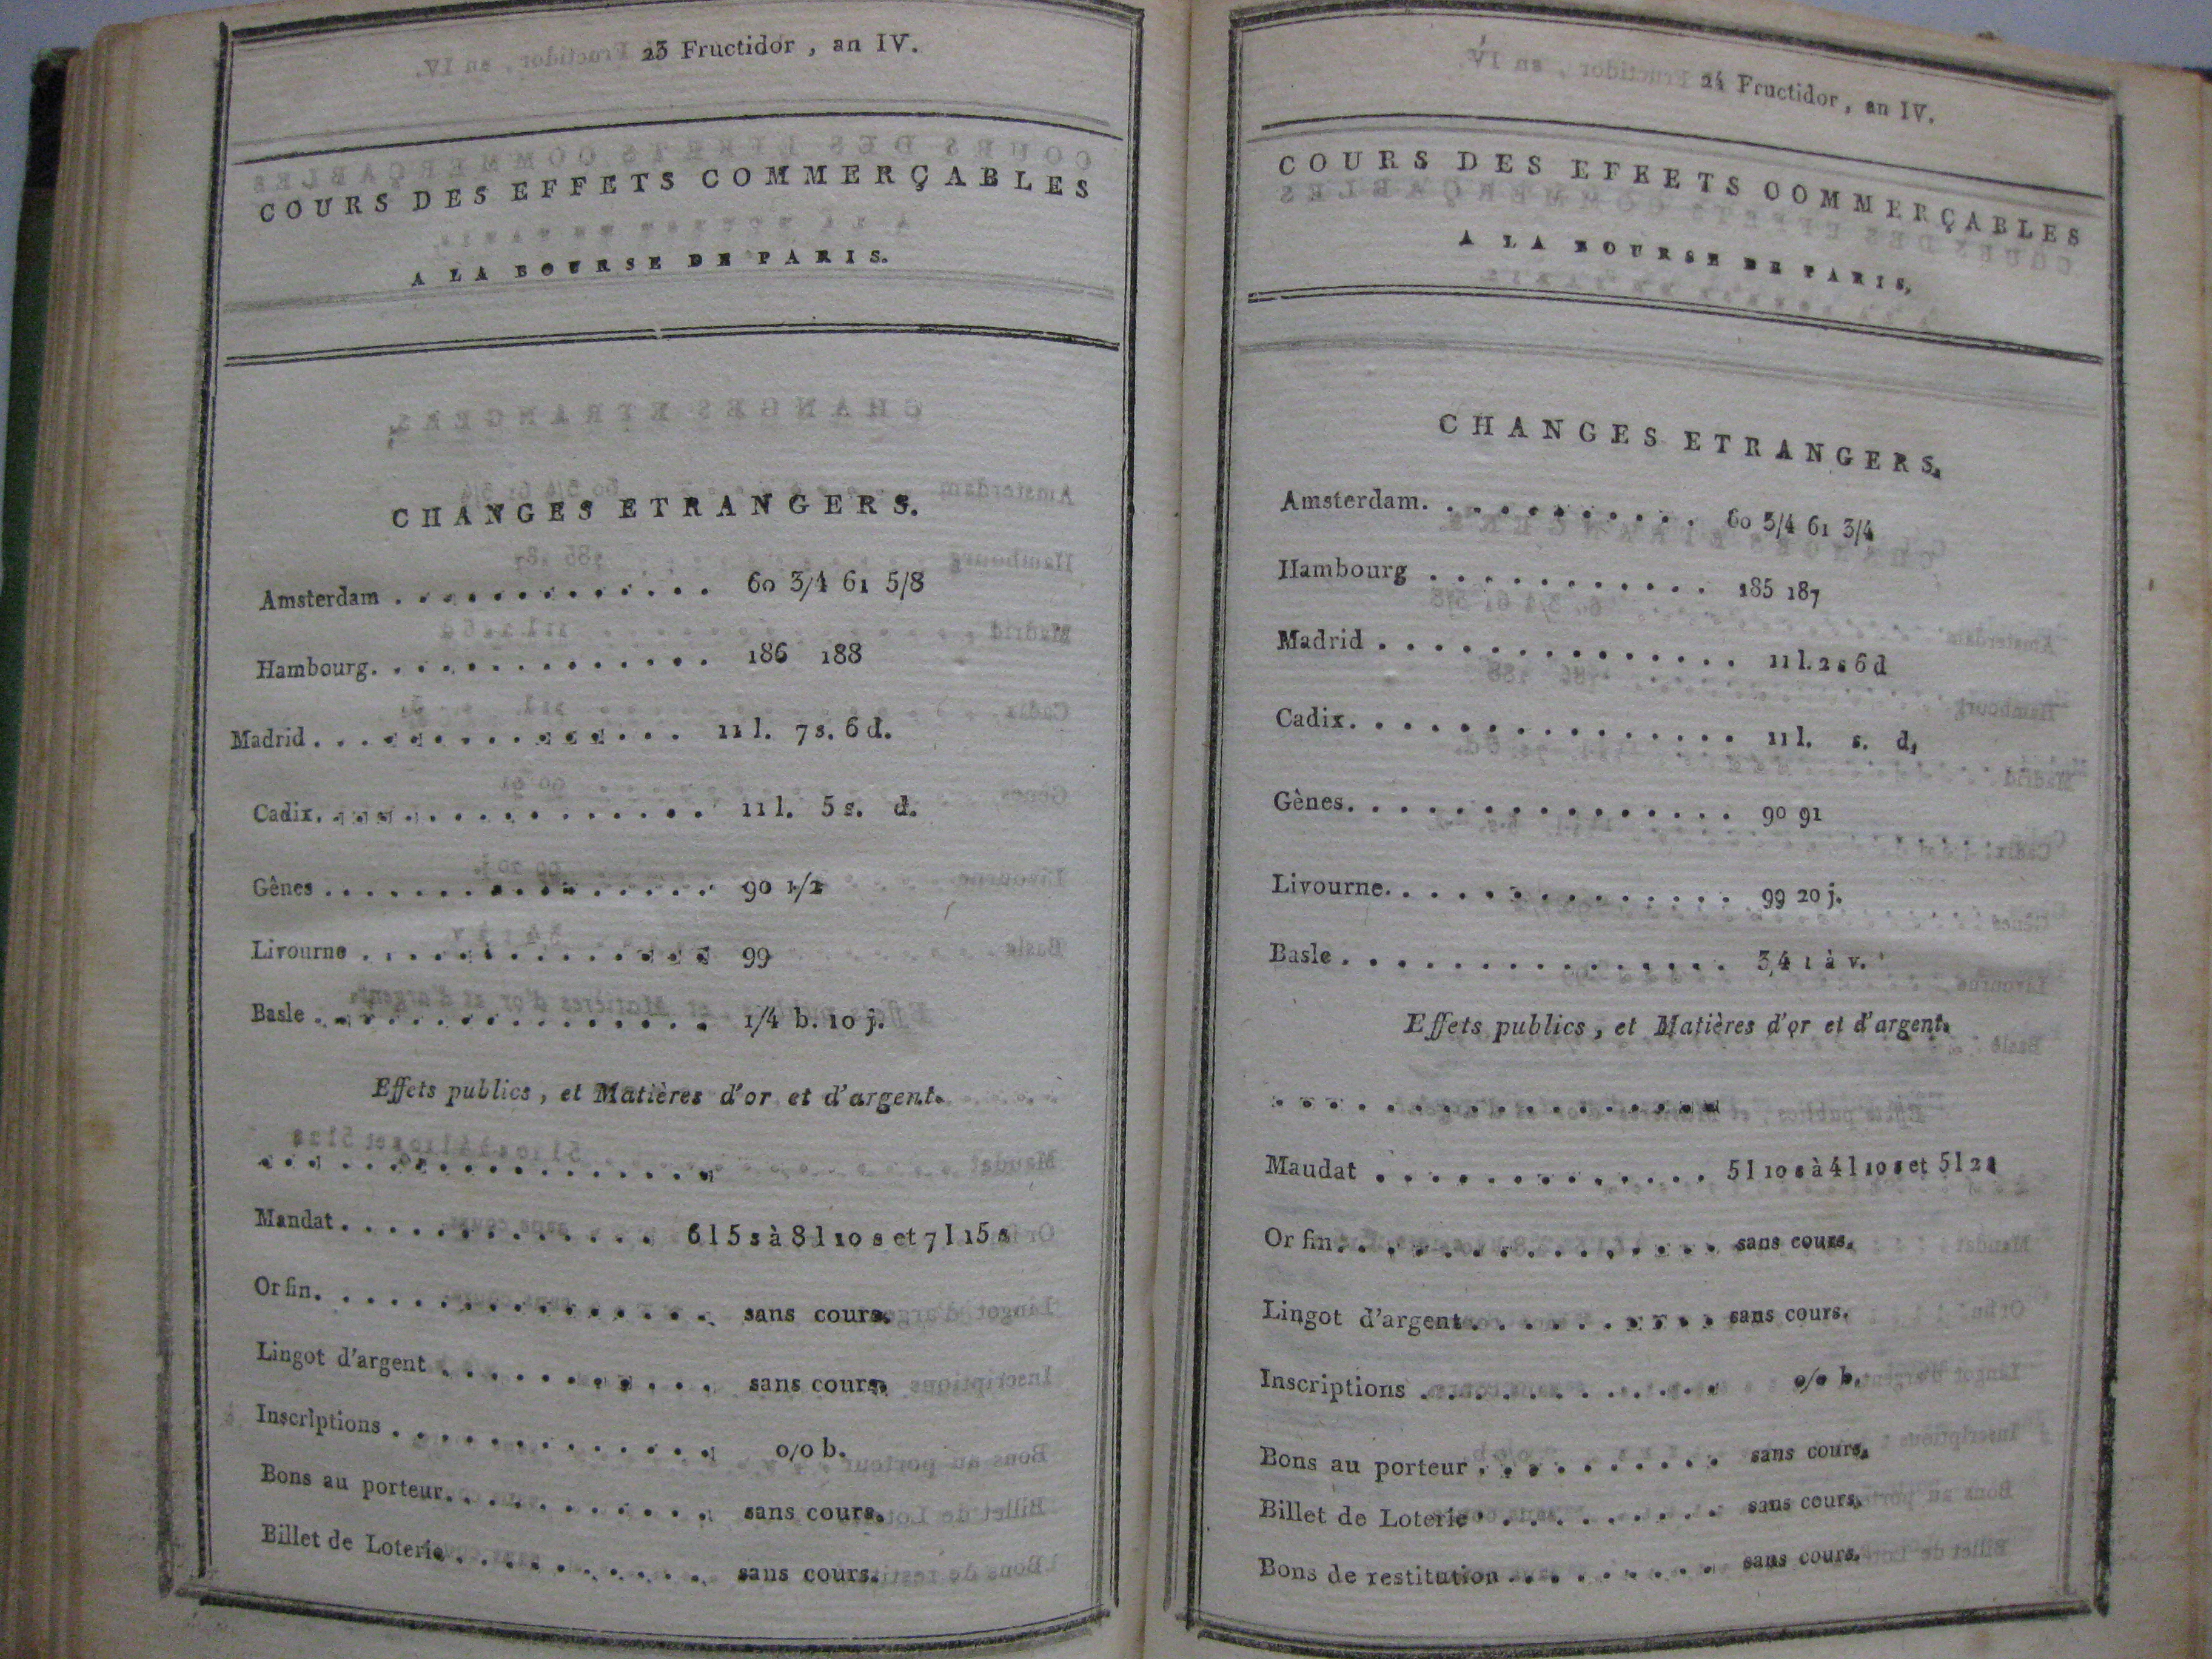 23 Fructidor, an IV.
COURS DES EFFETS COMMERÇABLES
A LA BOURSE DE PARIS.
CHANGES ETRANGERS.
Amsterdam . . . . . . . . . . . . . 60 3/4 61 5/8
Hambourg. . . . . . . . . . . . . . 186 188
Madrid . . . . . . . . . . . . . . . 11 l. 7 s. 6 d.
Cadix. . . . . . . . . . . . . . . . 11 l. 5 s. d.
Gênes . . . . . . . . . . . . . . . 90 1/2
Livourne . . . . . . . . . . . . . . 99
Basle . . . . . . . . . . . . . . . 1/4 b. 10 j.
Effets publics, et Matières d'or et d'argent.
. . . . . . . . . . . . . . . . . .
Mandat. . . . . . . . . . . . . 6 l 5 s à 8 l 10 s et 7 l 15 s
Or fin. . . . . . . . . . . . . . . sans cours.
Lingot d'argent . . . . . . . . . . . sans cours.
Inscriptions . . . . . . . . . . . . . 0/0 b.
Bons au porteur. . . . . . . . . . . sans cours.
Billet de Loterie . . . . . . . . . . sans cours.
24 Fructidor, an IV.
COURS DES EFFETS COMMERÇABLES
A LA BOURSE DE PARIS,
CHANGES ETRANGERS.
Amsterdam. . . . . . . . . . . 60 3/4 61 3/4
Hambourg . . . . . . . . . . . 185 187
Madrid . . . . . . . . . . . . . . 11 l. 2 s 6 d
Cadix. . . . . . . . . . . . . . . 11 l. s. d,
Gènes. . . . . . . . . . . . . . . 90 91
Livourne. . . . . . . . . . . . . . 99 20 j.
Basle . . . . . . . . . . . . . . . 3,4 1 à v.
Effets publics, et Matières d'or et d'argent.
. . . . . . . . . . . . . . . . .
Maudat . . . . . . . . . . . . . 5 l 10 s à 4 l 10 s et 5 l 2 s
Or fin. . . . . . . . . . . . . . . sans cours.
Lingot d'argent . . . . . . . . . . sans cours.
Inscriptions . . . . . . . . . . . . o/o b.
Bons au porteur . . . . . . . . . . sans cours.
Billet de Loterie . . . . . . . . . . sans cours.
Bons de restitution . . . . . . . . . sans cours.